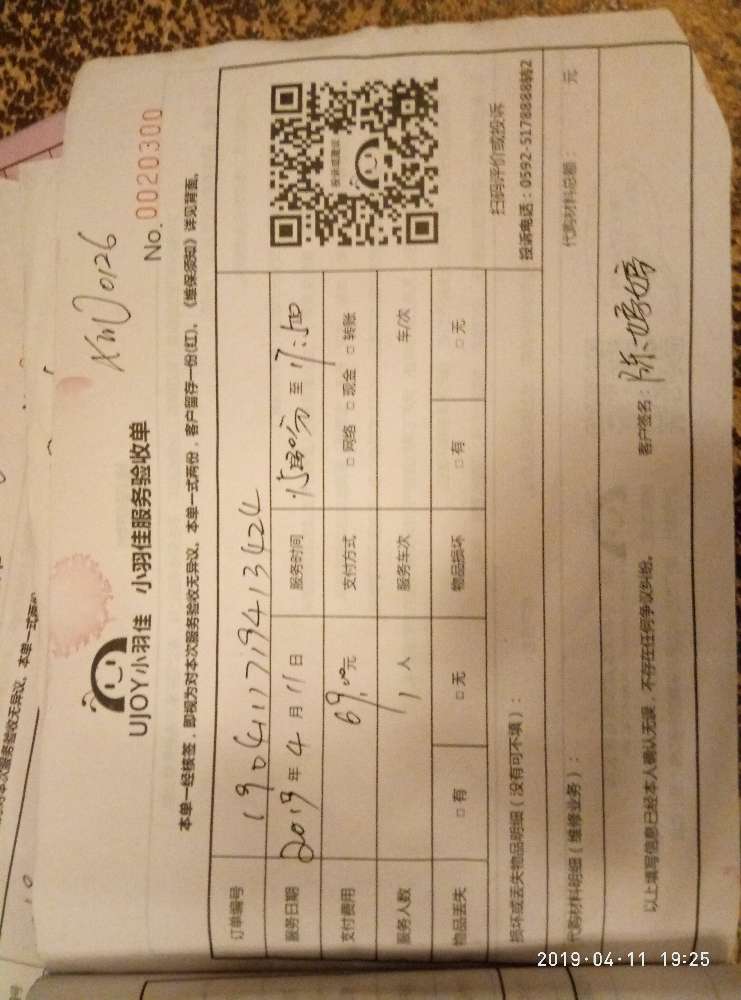 XMD0126
No.0020300
UJOY小羽佳 小羽佳服务验收单
本单一经核签，即视为对本次服务验收无异议。本单一式两份，客户留存一份(红)，《维保须知》详见背面。
订单编号
服务日期 2019年4月11日 服务时间 至17:50
支付费用 69.00元 支付方式 □网络 □现金 □转账
服务人数 1人 服务车次 车/次
物品丢失 □有 □无 物品损坏 □有 □无
投诉或建议
扫码评价或投诉
投诉电话：0592-5178888转2
损坏或丢失物品明细（没有可不填）：
代购材料明细（维修业务）： 代购材料总额： 元
以上填写信息已经本人确认无误，不存在任何争议纠纷。 客户签名：
2019-04-11 19:25